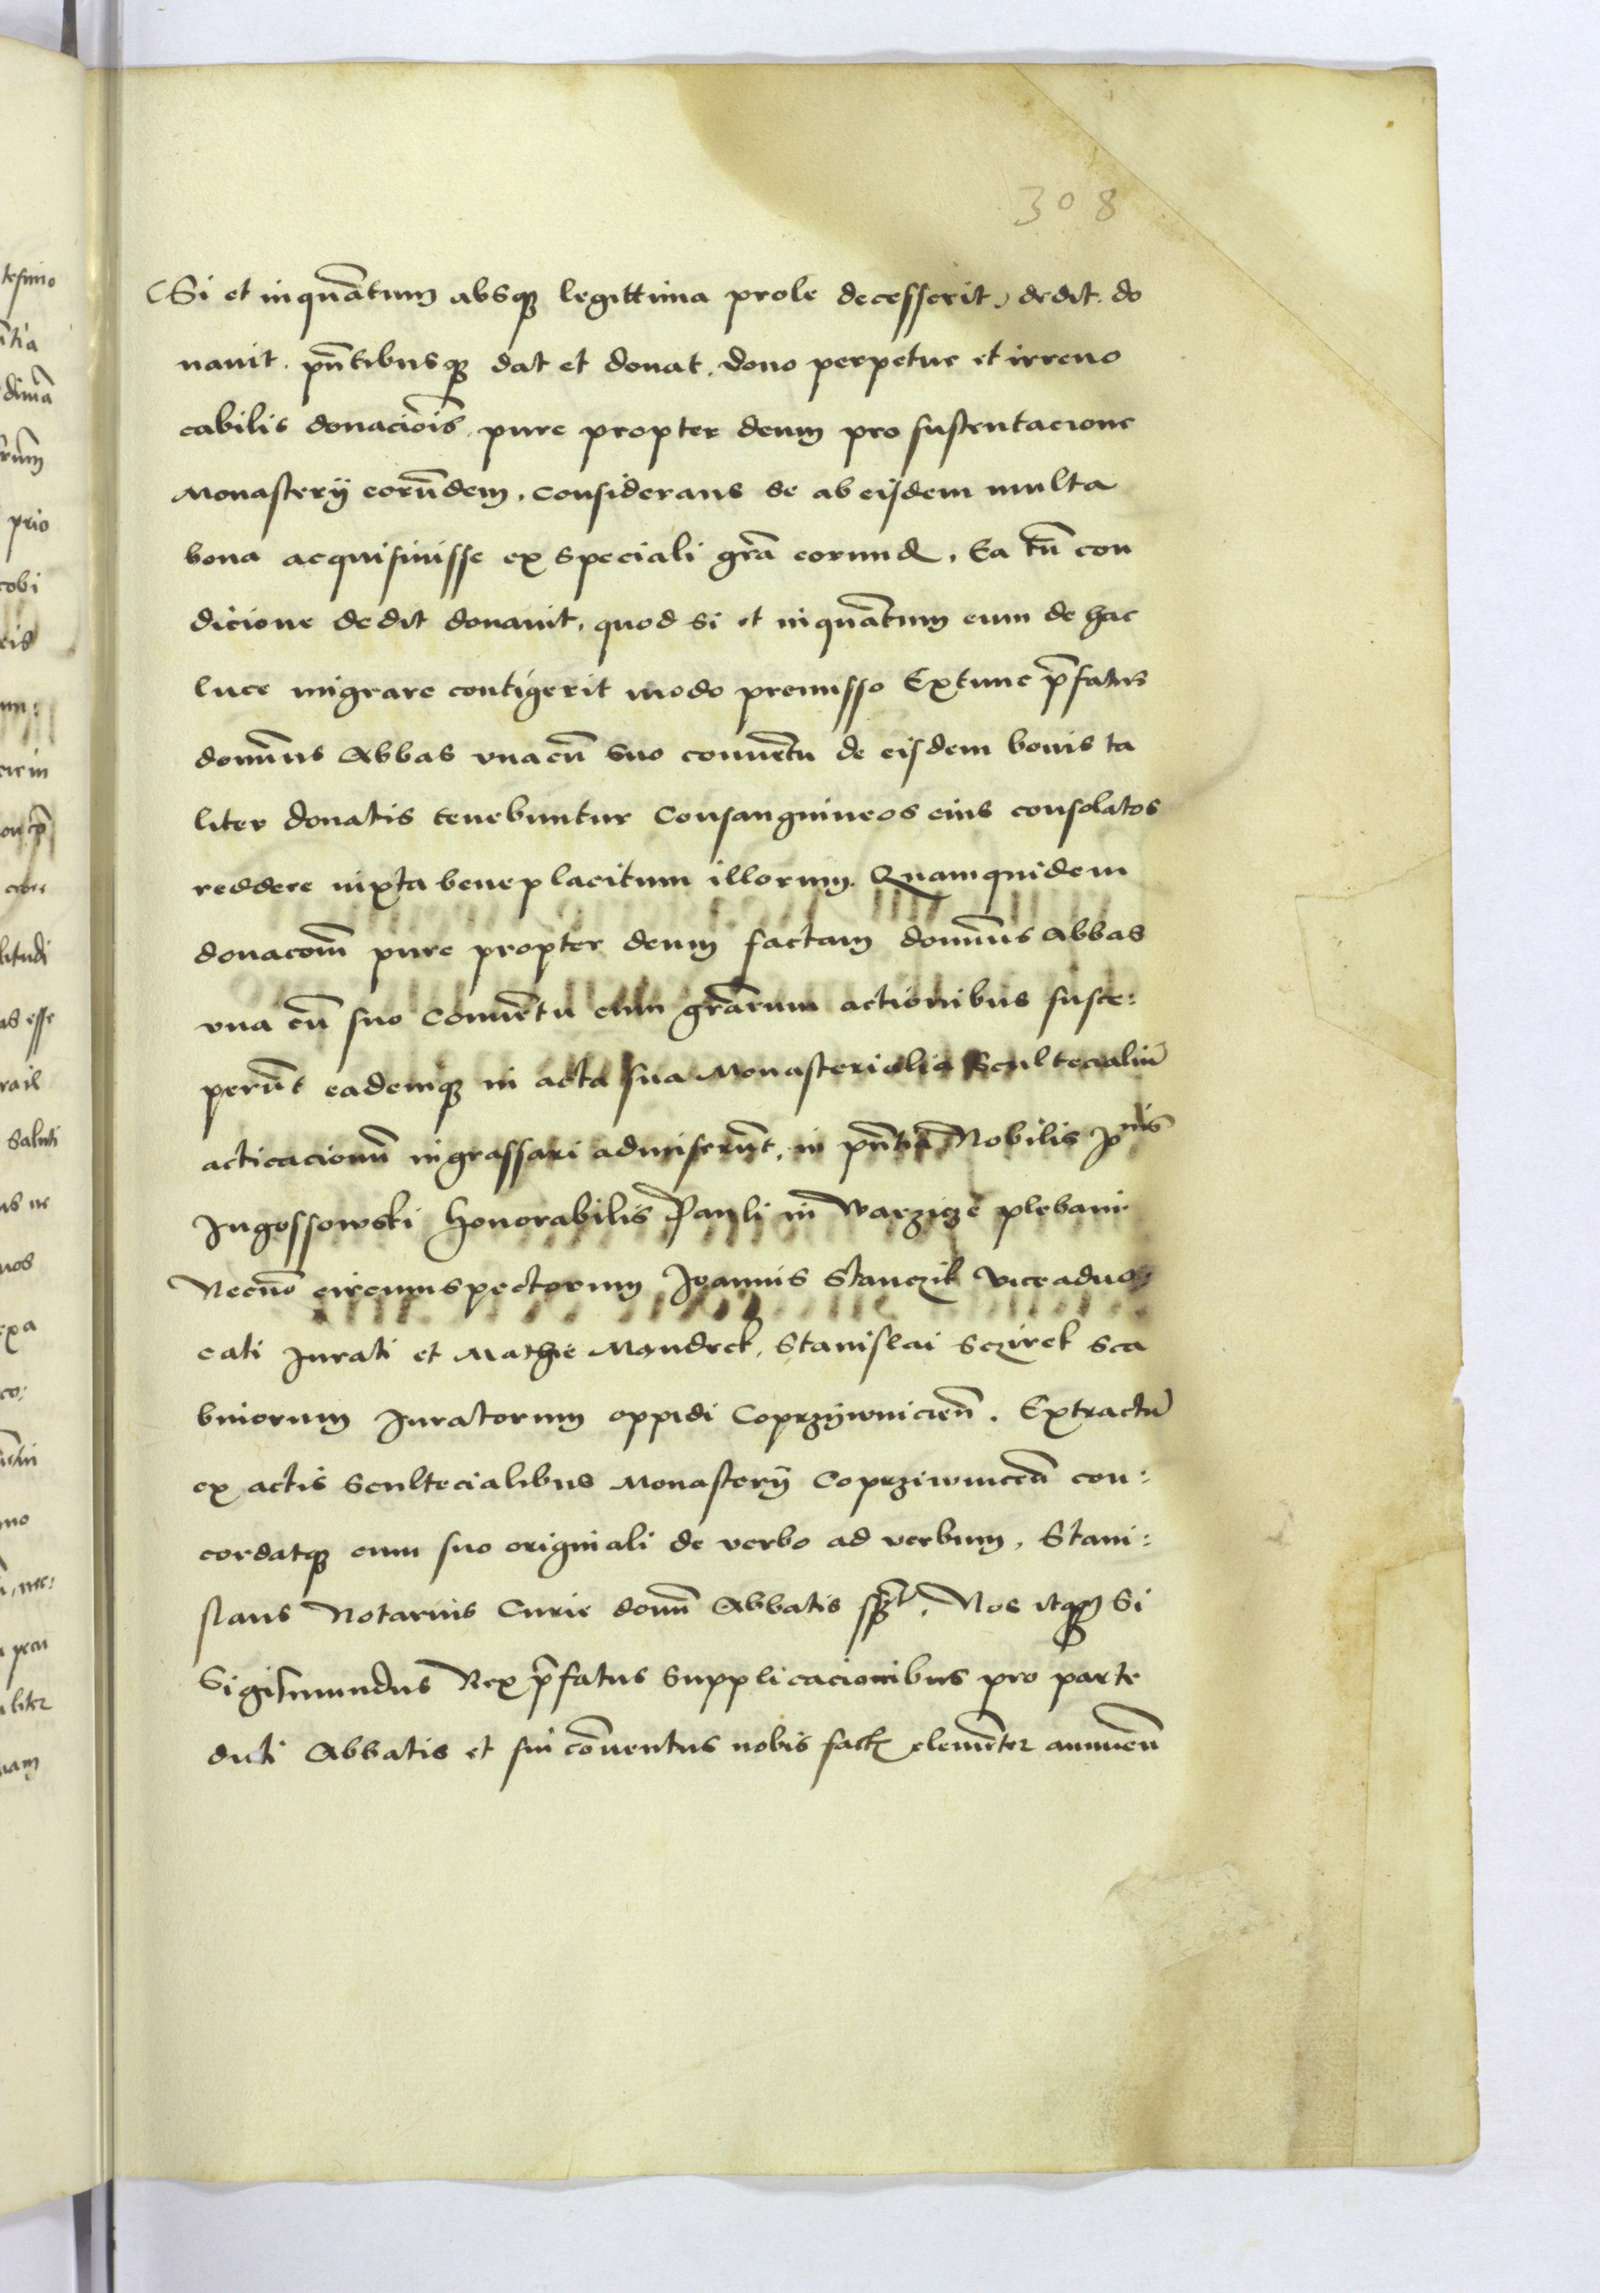 308
(Si et inquātum absqꝫ legittima prole decesserit) dedit. do
nauit. pn̄tibusqꝫ dat et donat. dono perpetue et irreuo
cabilis donaciōis. pure propter deum pro sustentacione
Monasterij eorūdem. considerans se ab eisdem multa
bona acquisiuisse ex speciali gr̄a eorund. Ea tn̄ con
dicione dedit donauit. quod si et inquātum eum de hac
luce migrare contigerit modo premisso Extunc p̄fatus
domin̄us Abbas vnacū suo conuētu de eisdem bonis ta
liter donatis tenebuntur Consanguineos eius consolatos
reddere iuxta beneplacitum illorum. Quamquidem
donacōm̄ pure propter deum factam domin̄us Abbas
vna cū suo Conuētu cum gr̄arum actionibus susce:
perūt eademqꝫ in acta sua Monasterialia Scultecialiū
acticacionū ingrassari admiserūt. in pn̄tia Nobilis
Jugossowski honorabilis Pauli in Warzicze plebani
Necnō circumspectorum Joannis Stanczik viceaduo:
cati Jurati et Mathie Mandrek. Stanislai Sczirek Sca
binorum Juratorum oppidi Coprzÿwnicieñ. Extractū
ex actis Scultecialibus Monasterij Coprziwniceñ con:
cordatqꝫ cum suo originali de verbo ad verbum. Stani:
slaus Notarius Curie domn̄ Abbatis sp̄t. Nos itaqꝫ Si
Sigismundus Rex p̄fatus Supplicacionibus pro parte
dicti Abbatis et sui cōuentus nobis fact clemēter annueñ